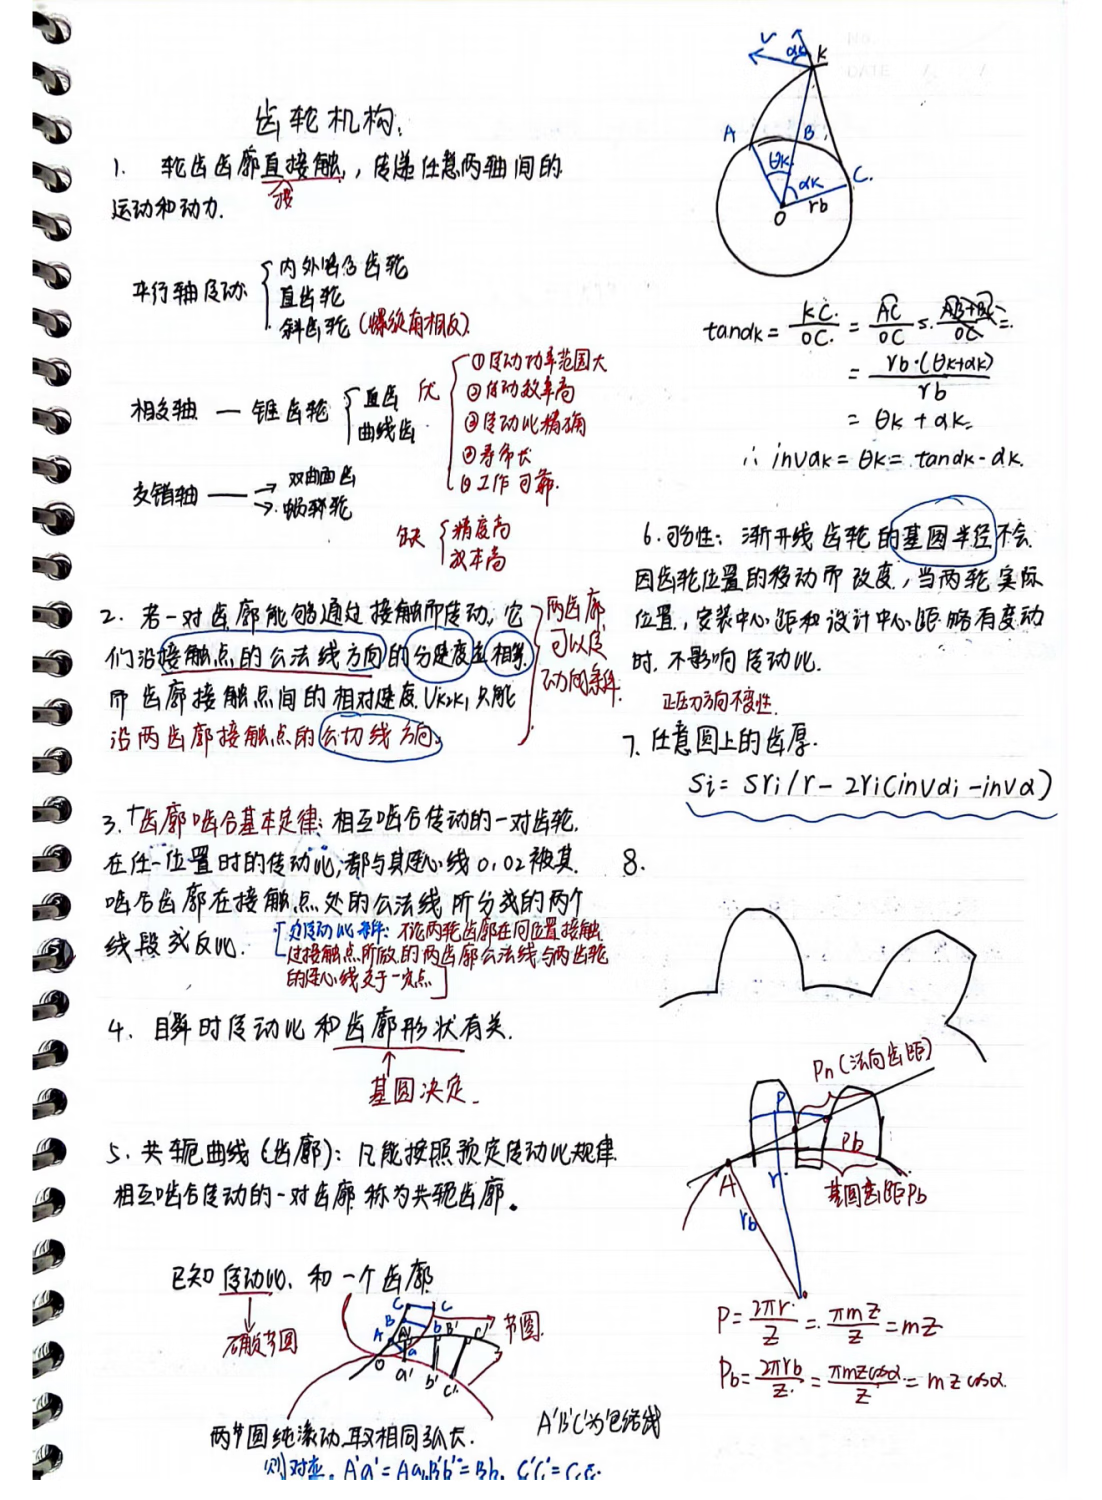 齿轮机构.
1. 轮齿齿廓直接接触,传递任意两轴间的
运动和动力.
平行轴传动
内外啮合齿轮
直齿轮
斜齿轮(螺旋角相反).
相交轴 — 锥齿轮
直齿
曲线齿
交错轴
双曲面齿
蜗杆轮
优
①传动功率范围大
②传动效率高
③传动比精确
④寿命长
⑤工作可靠.
缺
精度高
成本高
2. 若一对齿廓能够通过接触而传动,它
们沿接触点的公法线方向的分速度应相等.
而齿廓接触点间的相对速度Vk2k1只能
沿两齿廓接触点的公切线方向.
两齿廓
可以传
动的条件.
3. 「齿廓啮合基本定律:相互啮合传动的一对齿轮,
在任一位置时的传动比,都与其连心线O1O2被其
啮合齿廓在接触点处的公法线所分成的两个
线段成反比.
[定传动比条件:不论两轮齿廓在何位置接触
过接触点所做的两齿廓公法线与两齿轮
的连心线交于一定点]
4. 瞬时传动比和齿廓形状有关.
基圆决定.
5. 共轭曲线(齿廓):凡能按照预定传动比规律
相互啮合传动的一对齿廓称为共轭齿廓。
已知传动比,和一个齿廓
确定节圆
节圆.
C C
B b B' C'
A a
O a' b' c'
两节圆纯滚动,取相同弧长.
A'B'C'为包络线
则对应. A'a'=Aa, B'b'=Bb, C'c'=Cc.
V αk K
A B
θk αk C.
O rb
tanαk = KC/OC = AC/OC
= rb·(θk+αk)/rb
= θk + αk.
∴ invαk = θk = tanαk - αk.
6. 可分性:渐开线齿轮的基圆半径不会
因齿轮位置的移动而改变,当两轮实际
位置,安装中心距和设计中心距略有变动
时,不影响传动比.
正压力方向不变性.
7. 任意圆上的齿厚.
Si = Sri/r - 2ri(invαi - invα)
8.
Pn(法向齿距)
P
Pb
A r
基圆齿距Pb
rb
P = 2πr/Z = πmZ/Z = mZ
Pb = 2πrb/Z = πmZcosα/Z = mZcosα.